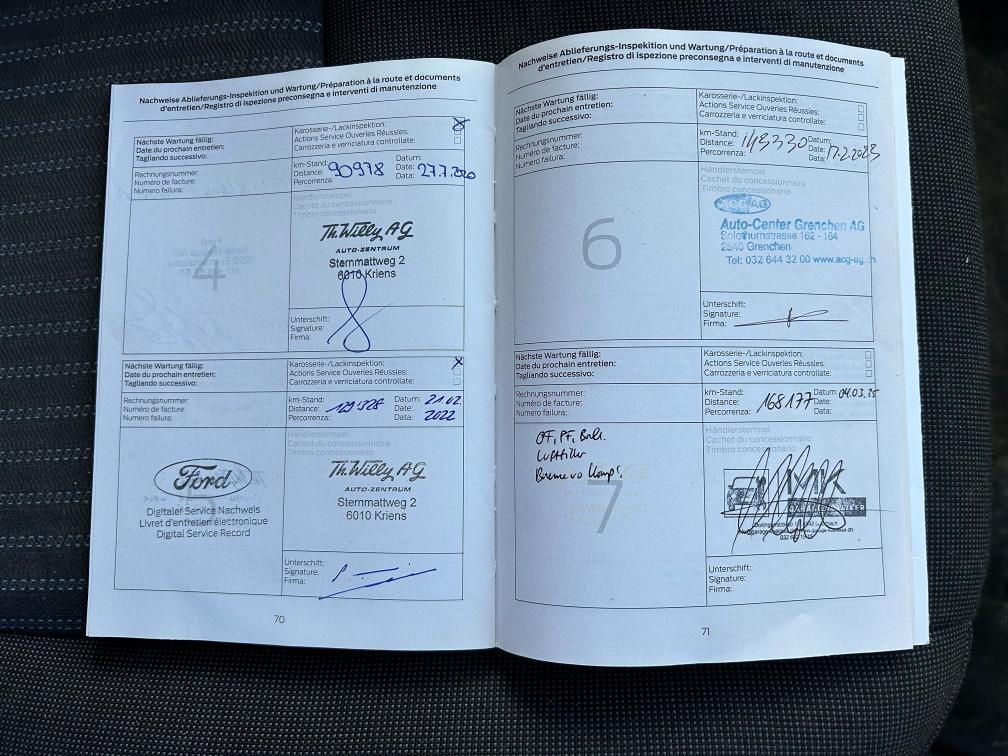 Nachweise Ablieferungs-Inspektion und Wartung/Préparation à la route et documents
d'entretien/Registro di ispezione preconsegna e interventi di manutenzione
Nächste Wartung fällig:
Date du prochain entretien:
Tagliando successivo:
Karosserie-/Lackinspektion:
Actions Service Ouverles Réussles:
Carrozzeria e verriciatura controllate:
Rechnungsnummer:
Numéro de facture:
Numero failura:
km-Stand:
Distance:
Percorrenza:
90978
Datum:
Date:
Data:
27.7.2020
Händlerstempel
Cachet du concessionnaire
Timbro concessionario
4
Th. Willy AG
AUTO-ZENTRUM
Sternmattweg 2
6010 Kriens
Unterschift:
Signature:
Firma:
Nächste Wartung fällig:
Date du prochain entretien:
Tagliando successivo:
Karosserie-/Lackinspektion:
Actions Service Ouverles Réussles:
Carrozzeria e verriciatura controllate:
Rechnungsnummer:
Numéro de facture:
Numero failura:
km-Stand:
Distance:
Percorrenza:
129'528
Datum:
Date:
Data:
21.02.
2022
Ford
Digitaler Service Nachweis
Livret d'entretien électronique
Digital Service Record
Händlerstempel
Cachet du concessionnaire
Timbro concessionario
Th. Willy AG
AUTO-ZENTRUM
Sternmattweg 2
6010 Kriens
Unterschift:
Signature:
Firma:
70
Nachweise Ablieferungs-Inspektion und Wartung/Préparation à la route et documents
d'entretien/Registro di ispezione preconsegna e interventi di manutenzione
Nächste Wartung fällig:
Date du prochain entretien:
Tagliando successivo:
Karosserie-/Lackinspektion:
Actions Service Ouverles Réussles:
Carrozzeria e verriciatura controllate:
Rechnungsnummer:
Numéro de facture:
Numero failura:
km-Stand:
Distance:
Percorrenza:
148330
Datum:
Date:
Data:
17.2.2023
6
Händlerstempel
Cachet du concessionnaire
Timbro concessionario
ACG AG
Auto-Center Grenchen AG
Solothurnstrasse 162 - 164
2540 Grenchen
Tel: 032 644 32 00 www.acg-ag.ch
Unterschift:
Signature:
Firma:
Nächste Wartung fällig:
Date du prochain entretien:
Tagliando successivo:
Karosserie-/Lackinspektion:
Actions Service Ouverles Réussles:
Carrozzeria e verriciatura controllate:
Rechnungsnummer:
Numéro de facture:
Numero failura:
km-Stand:
Distance:
Percorrenza:
168177
Datum:
Date:
Data:
04.03.25
ÖF, PF,
Luftfilter
Bremse vo komp!
7
Händlerstempel
Cachet du concessionnaire
Timbro concessionario
Unterschift:
Signature:
Firma:
71